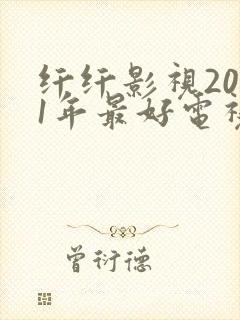 纤纤影視20
1年最好電視
曾衍德